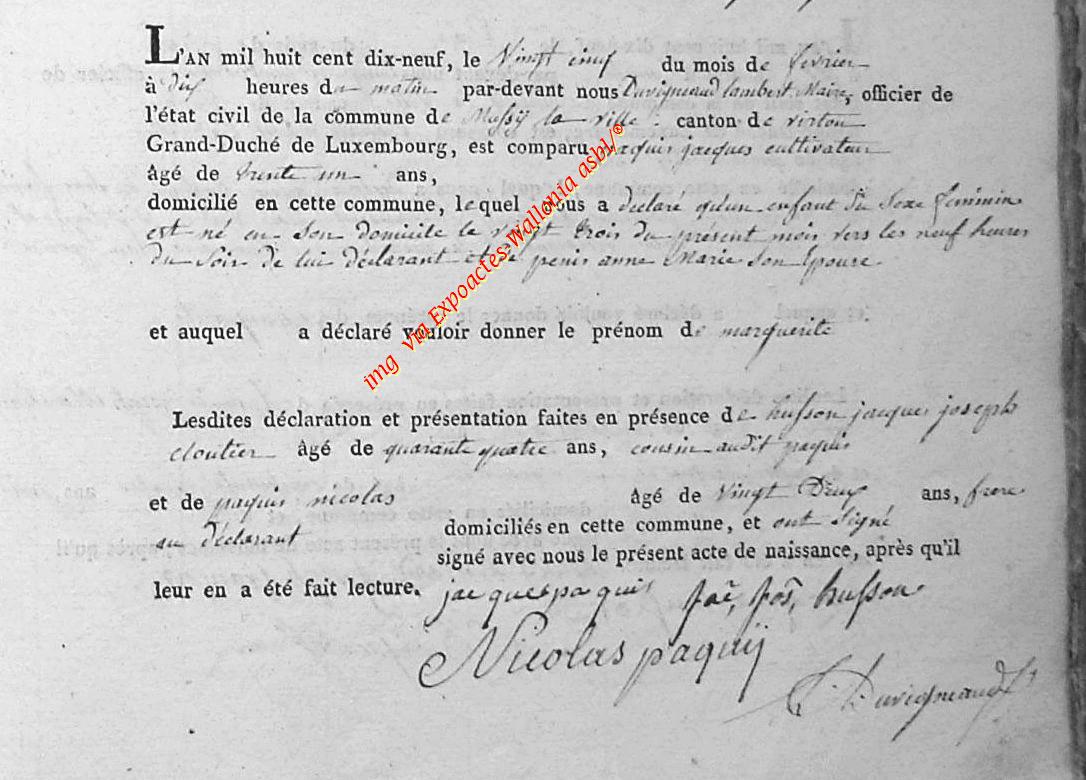 L'AN mil huit cent dix-neuf, le Vingt cinq du mois de fevrier
à dix heures du matin par-devant nous Duvigneaud lambert Maire, officier de
l'état civil de la commune de Mussÿ la ville canton de virton
Grand-Duché de Luxembourg, est comparu paquis jacques cultivateur
âgé de trente un ans,
domicilié en cette commune, lequel nous a déclaré qu'un enfant du Sexe féminin
est né en son domicile le vingt trois du présent mois vers les neuf heures
du Soir de lui déclarant et de penis anne Marie Son Epouse
et auquel a déclaré vouloir donner le prénom de marguerite
Lesdites déclaration et présentation faites en présence de husson jacques joseph
cloutier âgé de quarante quatre ans, cousin audit paquis
et de paquis nicolas âgé de vingt Deux ans, frere
au déclarant domiciliés en cette commune, et ont Signé
signé avec nous le présent acte de naissance, après qu'il
leur en a été fait lecture.
jacques paquis husson
Nicolas paquij
Duvigneaud
img via Expoactes-Wallonia asbl/©